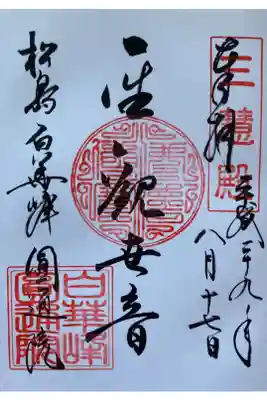 奉拝
三慧殿
平成二九年
八月十七日
聖観世音
松島白華峰圓通院
白華峰
圓通院